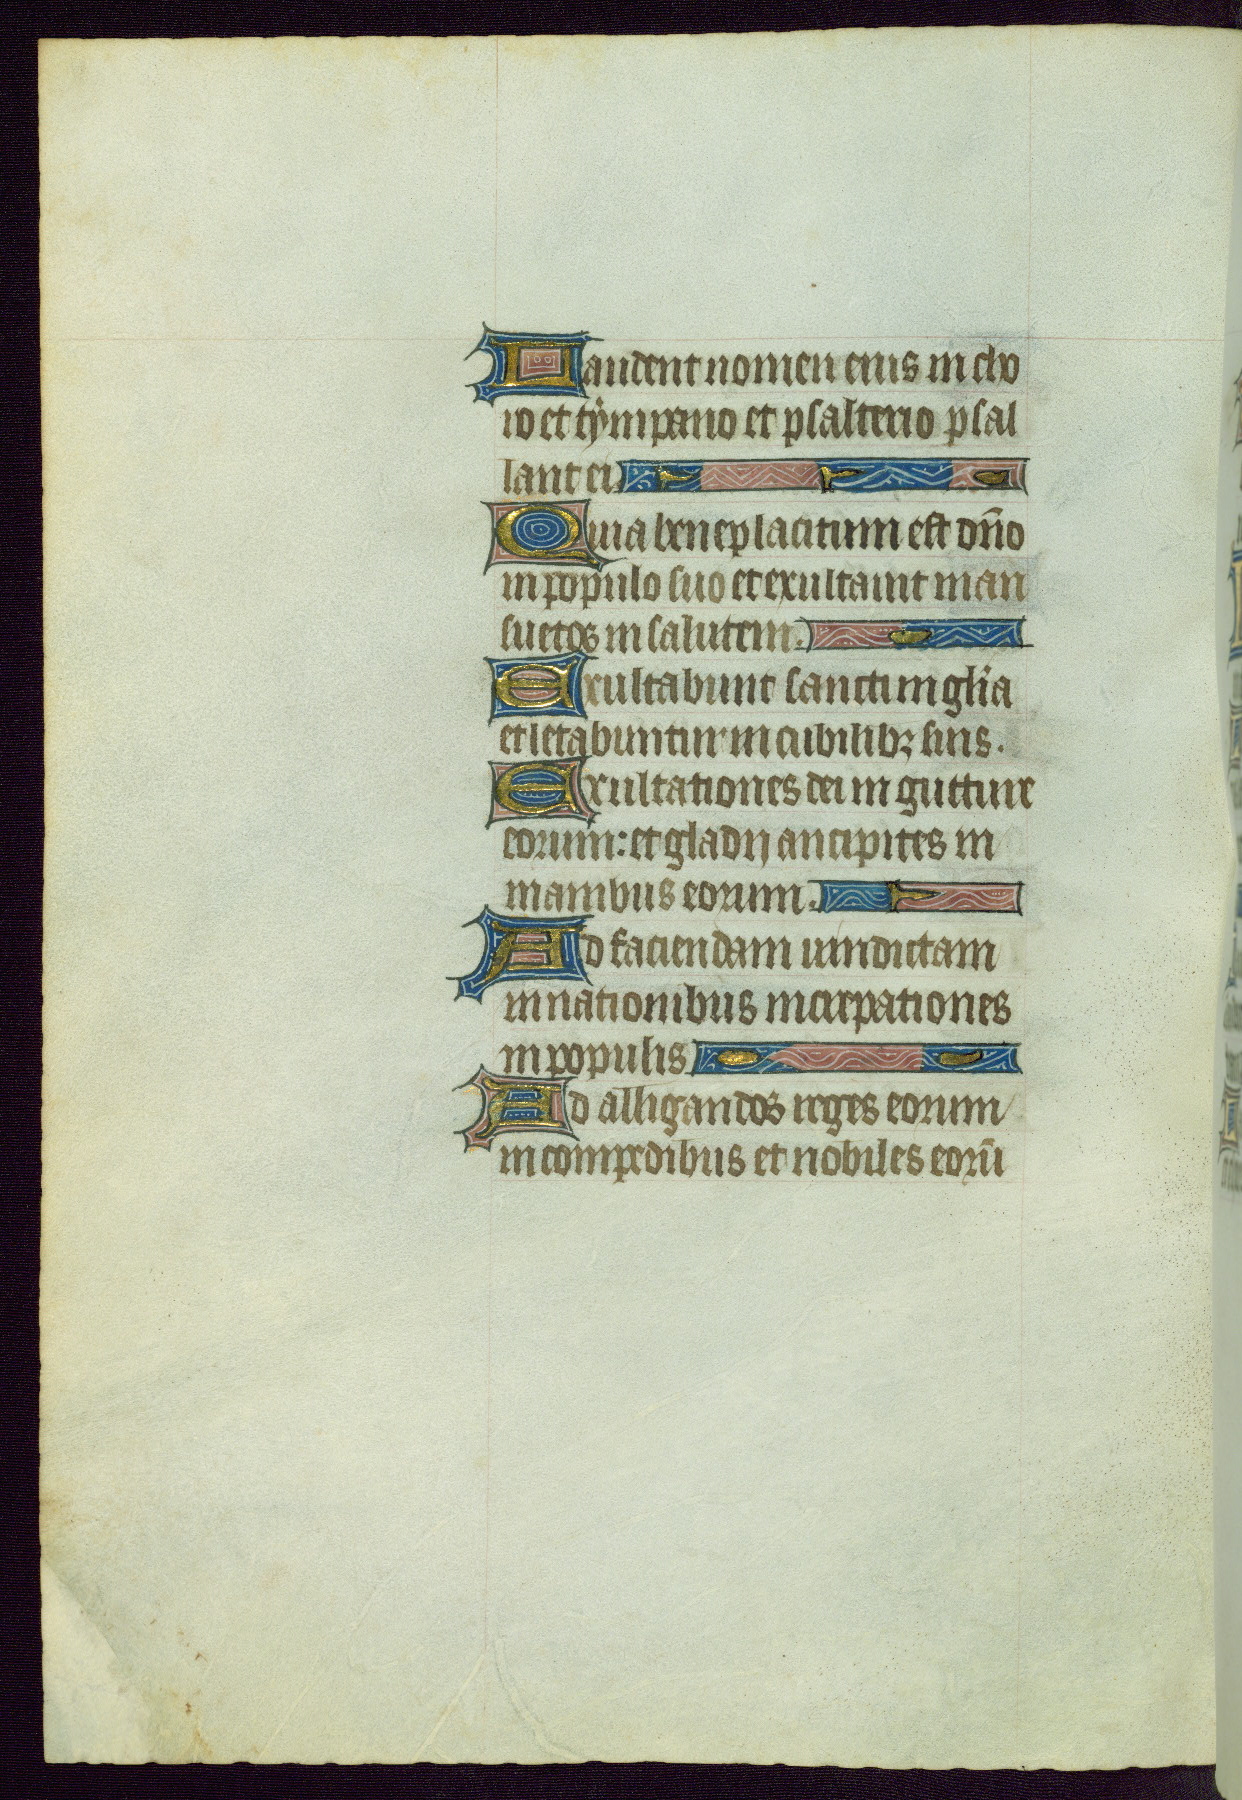 Laudent nomen eius in cho
ro et tympano et psalterio psal
lant ei
Quia beneplacitum est dño
in populo suo et exultauit man
suetos in salutem.
Exultabunt sancti in glia
et letabuntur in cubilibꝫ suis.
Exultationes dei in gutture
eorum: et gladij ancipites in
manibus eorum.
Ad faciendam uindictam
in nationibus increpationes
in populis
Ad alligandos reges eorum
in compedibus et nobiles eorū